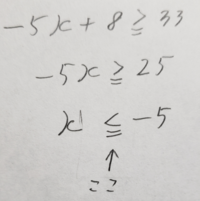 -5x + 8 ≧ 33
-5x ≧ 25
x ≦ -5
↑
ここ